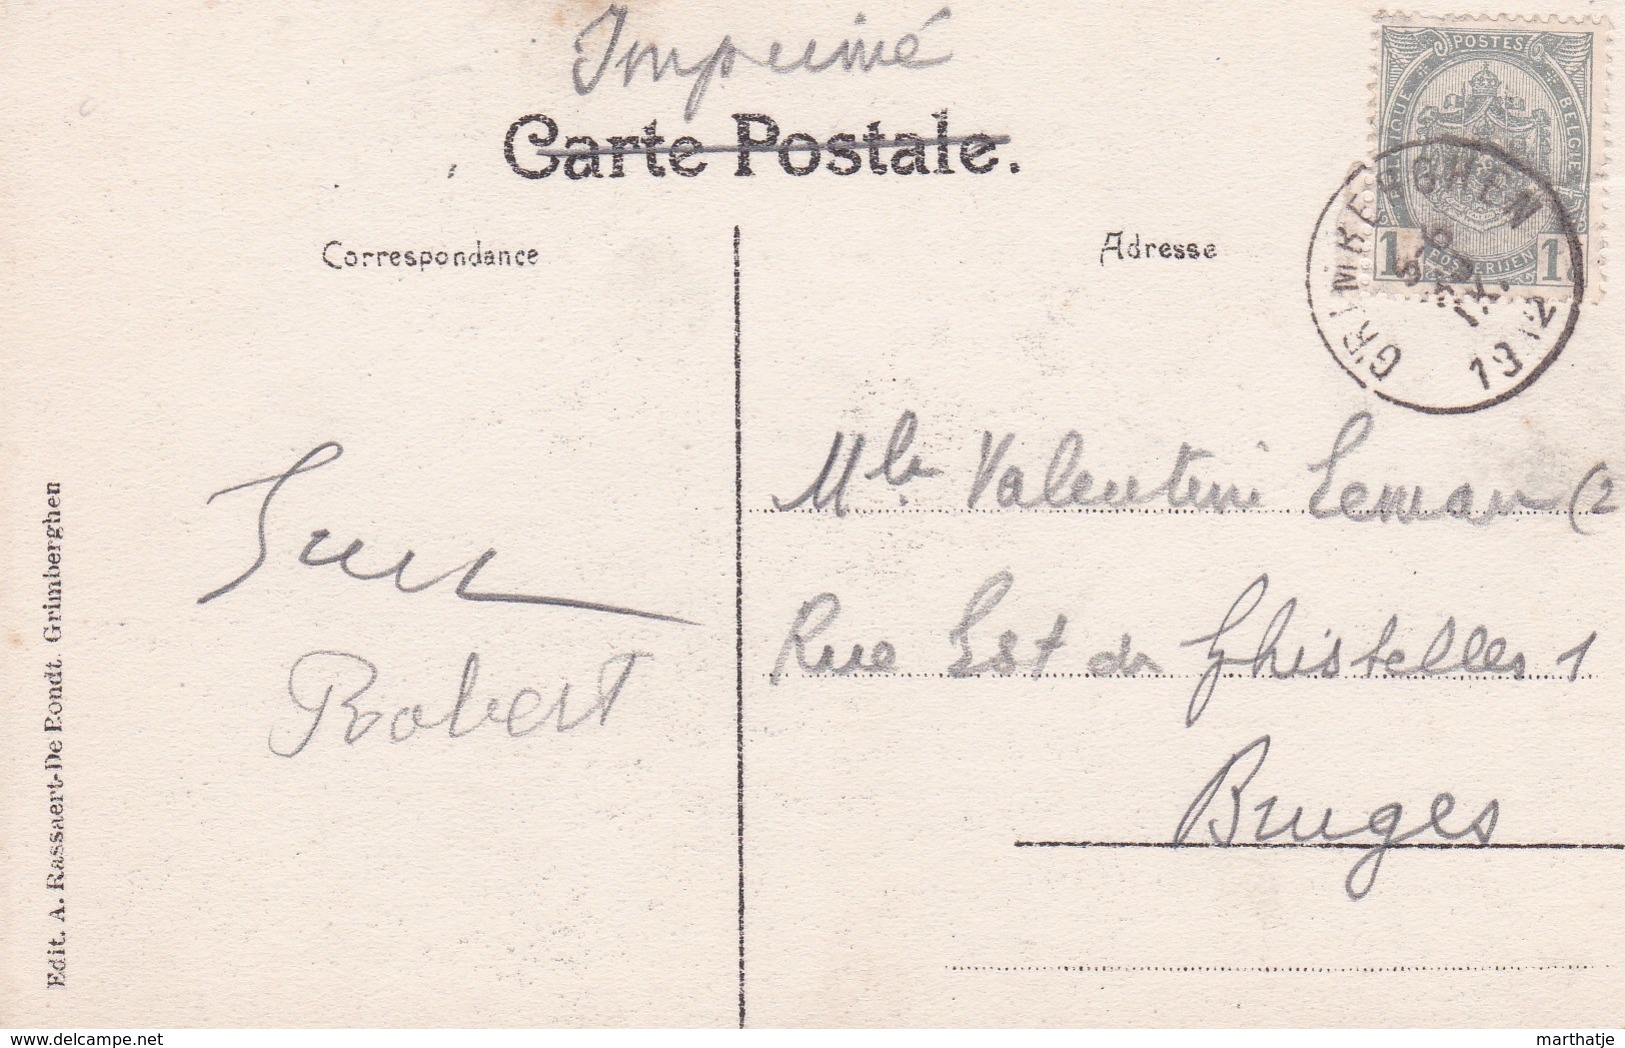 Imprimé
Carte Postale.
Correspondance
Adresse
POSTES
BELGIQUE
BELGIE
1
POSTERIJEN
1
GRIMBERGHEN
IX.
1912
Robert
Mlle Valentine Leman (2
Rue Est de Ghistelles 1
Bruges
Edit. A. Rassaert-De Rondt. Grimberghen
delcampe.net
marthatje